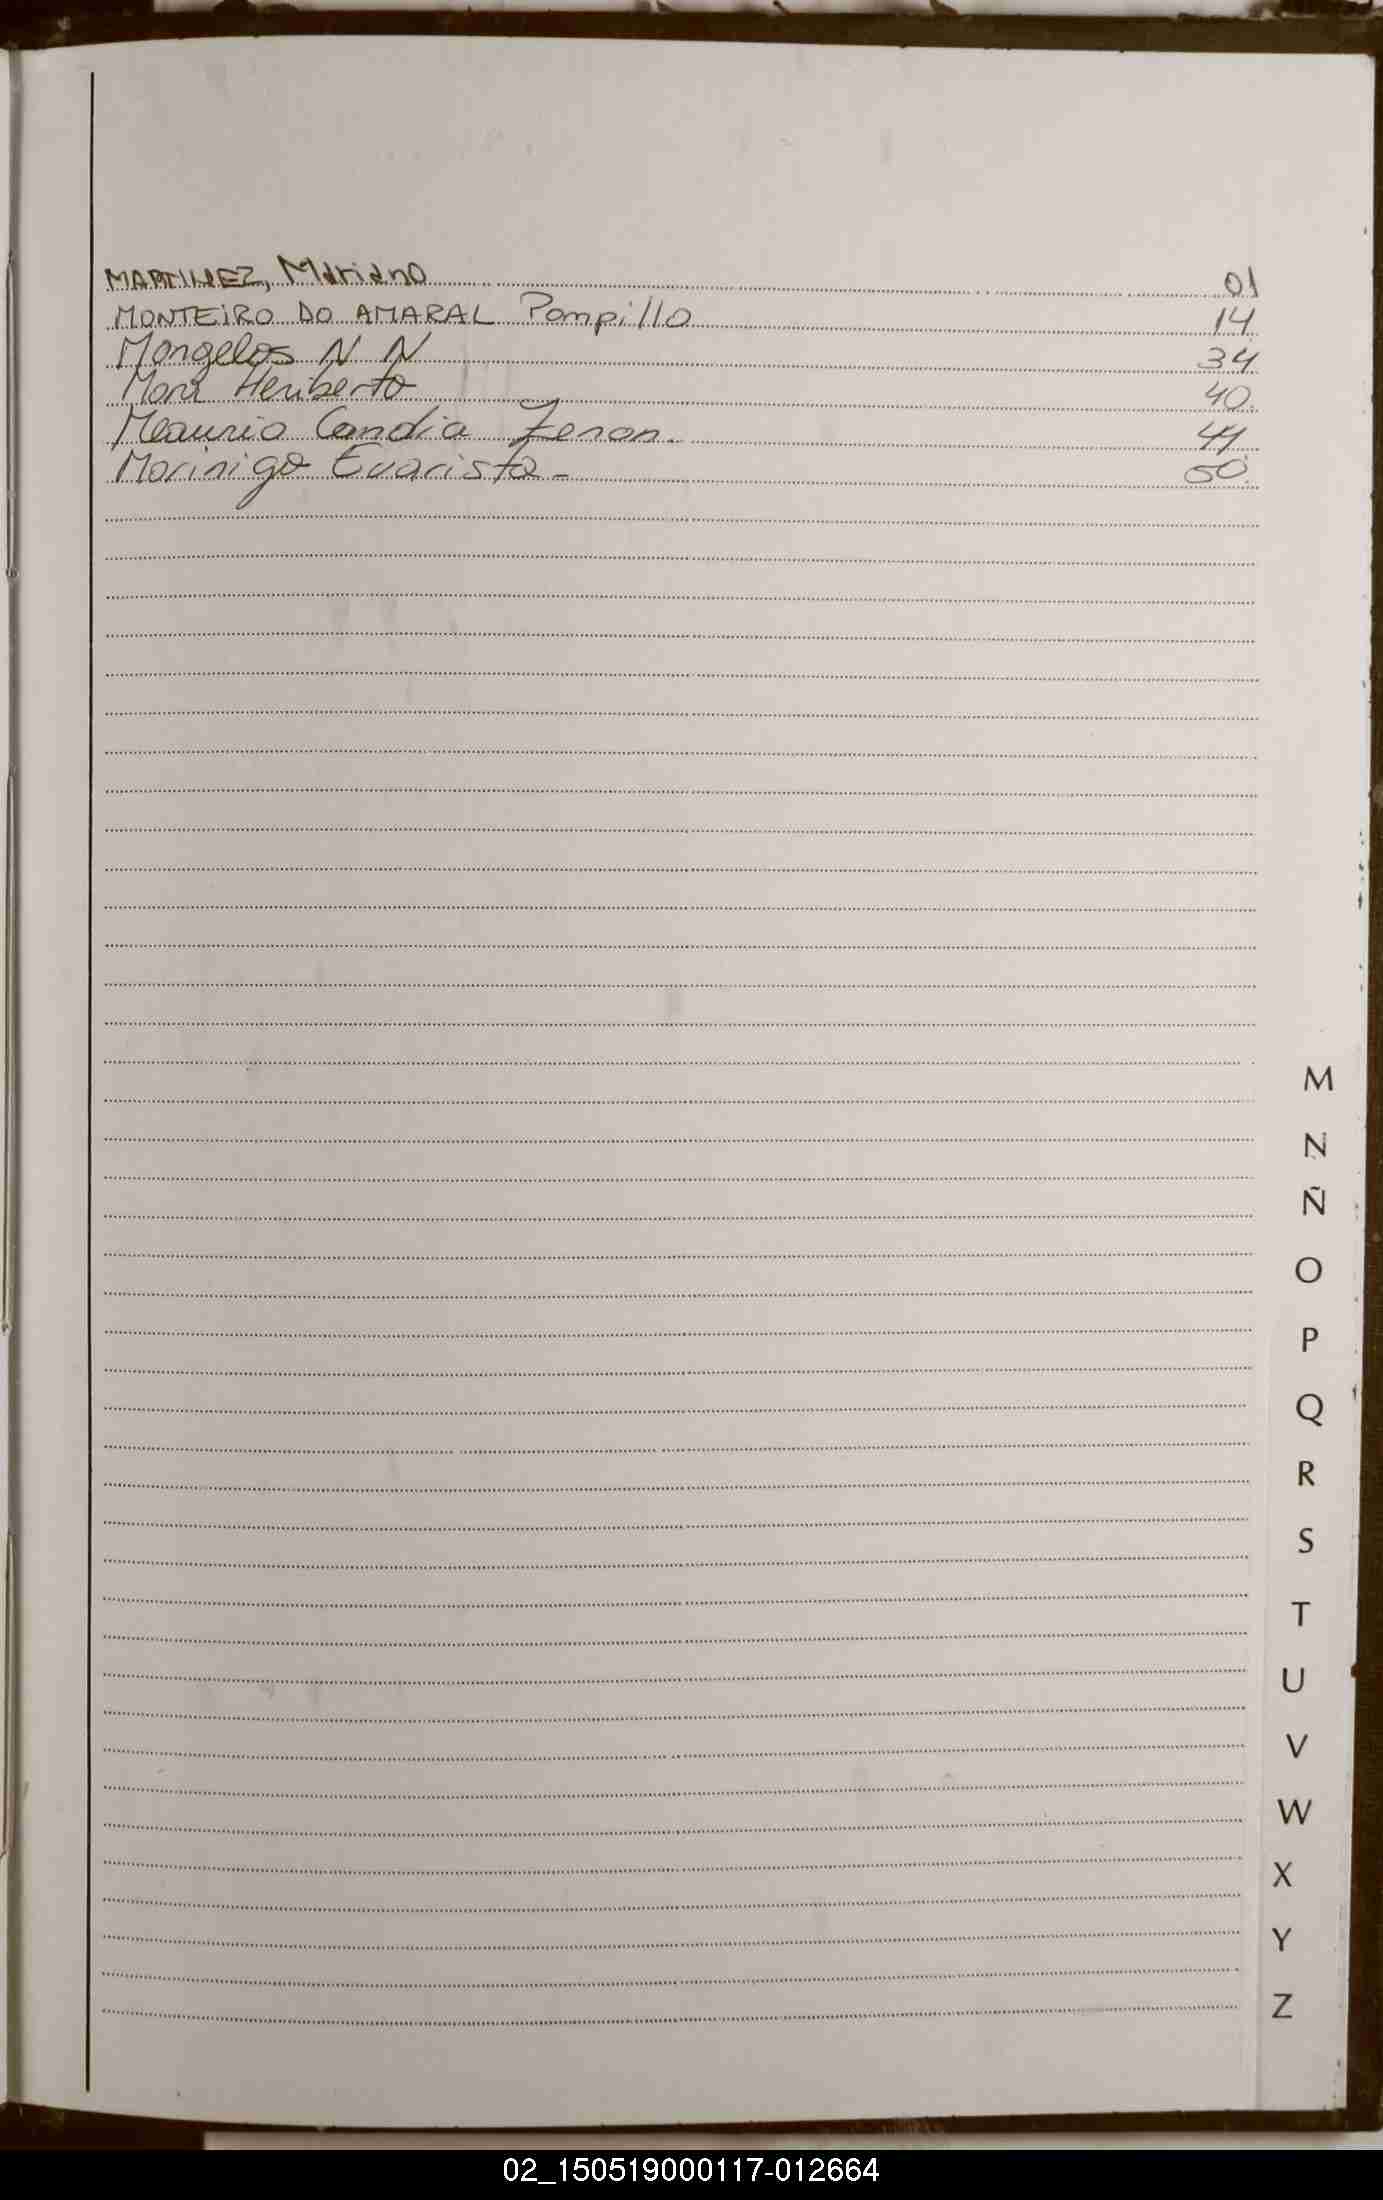 MARTINEZ, Mariano 01
MONTEIRO DO AMARAL Pompillo 14
Mongelos N N 34
Mora Heriberto 40.
Meaurio Candia Zenon. 44
Morinigo Evarista - 50.
M
N
Ñ
O
P
Q
R
S
T
U
V
W
X
Y
Z
02_150519000117-012664